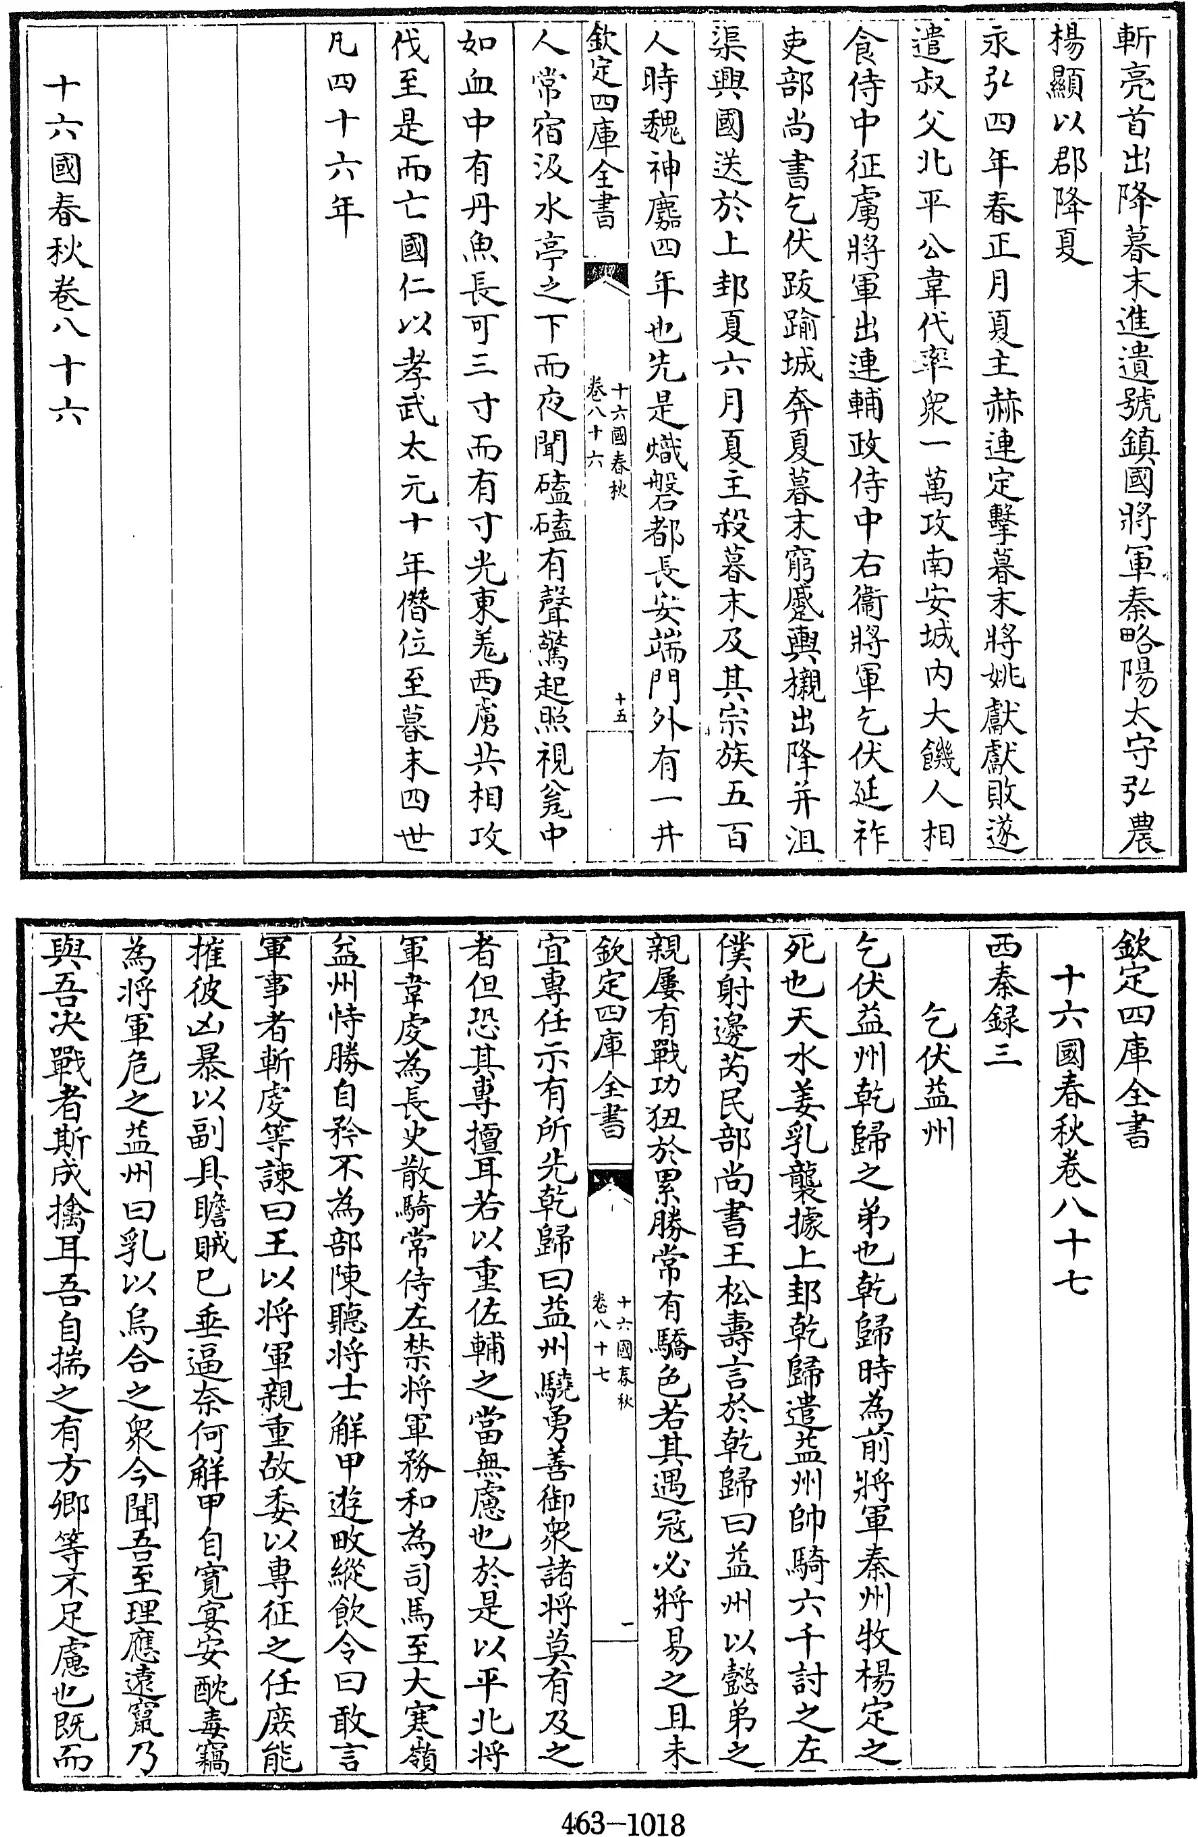 斬亮首出降暮末進遺號鎮國將軍秦略陽太守弘農
楊顯以郡降夏
永弘四年春正月夏主赫連定擊暮末將姚獻獻敗遂
遣叔父北平公韋代率衆一萬攻南安城内大饑人相
食侍中征虜將軍出連輔政侍中右衞將軍乞伏延祚
吏部尚書乞伏跋踰城奔夏暮末窮蹙輿櫬出降并沮
渠興國送於上邽夏六月夏主殺暮末及其宗族五百
人時魏神䴥四年也先是熾磐都長安端門外有一井
欽定四庫全書
十六國春秋
卷八十六
十五
人常宿汲水亭之下而夜聞磕磕有聲驚起照視瓮中
如血中有丹魚長可三寸而有寸光東羌西虜共相攻
伐至是而亡國仁以孝武太元十年僭位至暮末四世
凡四十六年
十六國春秋卷八十六
欽定四庫全書
十六國春秋卷八十七
西秦録三
乞伏益州
乞伏益州乾歸之弟也乾歸時為前將軍秦州牧楊定之
死也天水姜乳襲據上邽乾歸遣益州帥騎六千討之左
僕射邊芮民部尚書王松壽言於乾歸曰益州以懿弟之
親屢有戰功狃於累勝常有驕色若其遇冦必將易之且未
欽定四庫全書
十六國春秋
卷八十七
一
宜專任示有所先乾歸曰益州驍勇善御衆諸將莫有及之
者但恐其專擅耳若以重佐輔之當無慮也於是以平北將
軍韋虔為長史散騎常侍左禁將軍務和為司馬至大寒嶺
益州恃勝自矜不為部陳聽將士解甲遊畋縱飲令曰敢言
軍事者斬虔等諫曰王以將軍親重故委以專征之任庶能
摧彼凶暴以副具瞻賊已垂逼奈何解甲自寛宴安酖毒竊
為將軍危之益州曰乳以烏合之衆今聞吾至理應遠竄乃
與吾决戰者斯成擒耳吾自揣之有方卿等不足慮也既而
463-1018